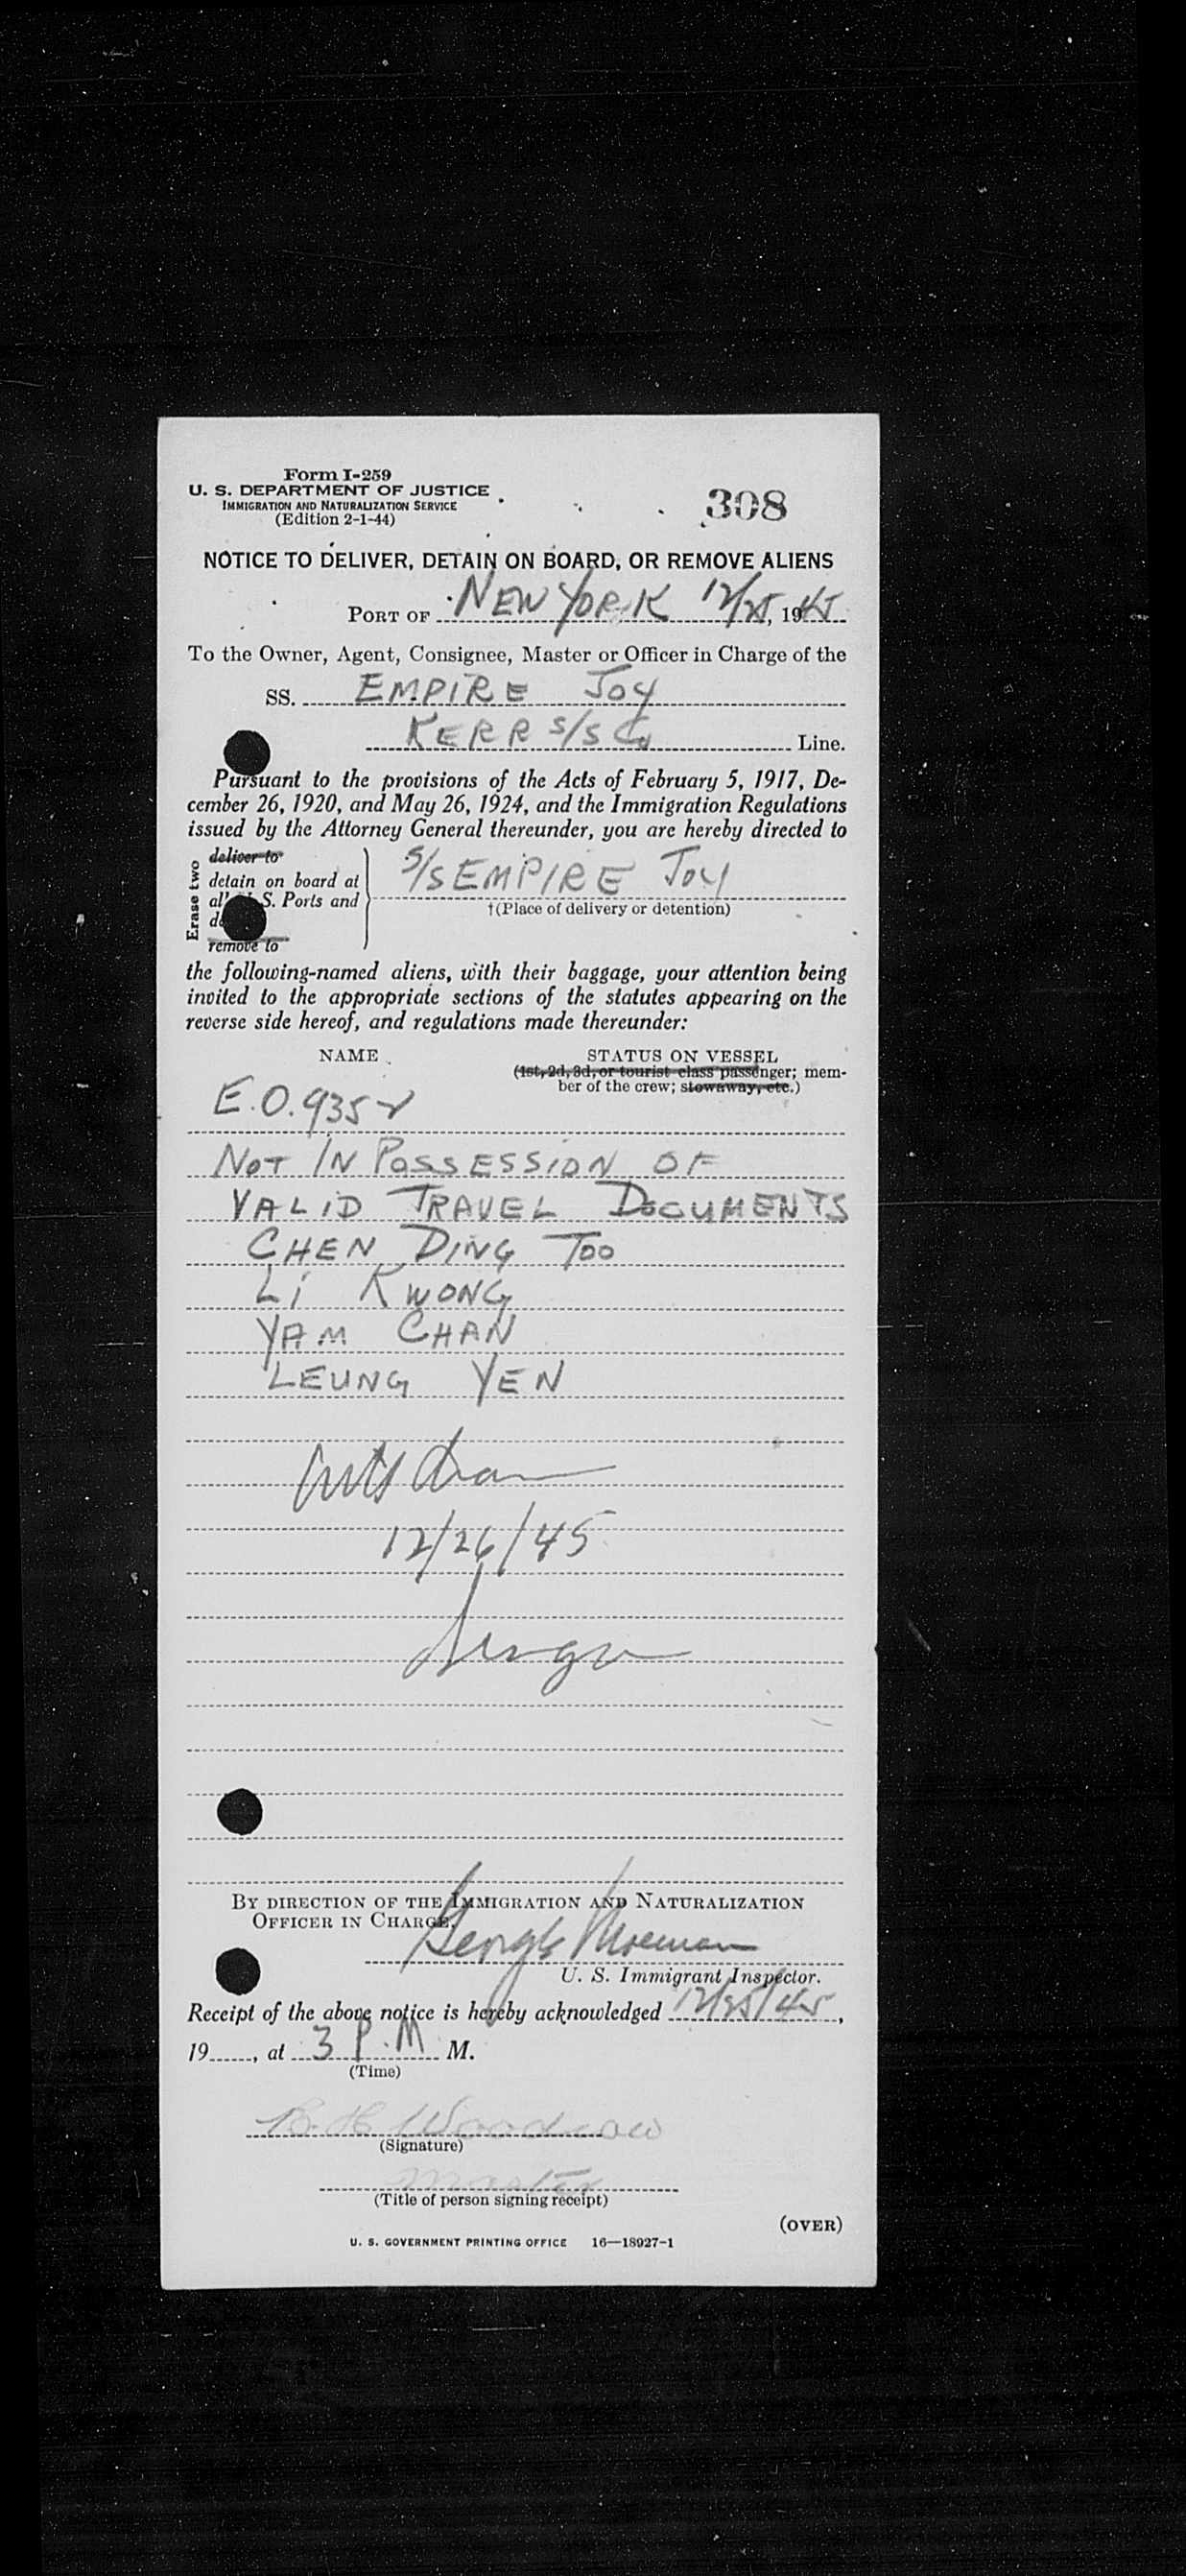 Form I-259
U. S. DEPARTMENT OF JUSTICE
IMMIGRATION AND NATURALIZATION SERVICE
(Edition 2-1-44)
308
NOTICE TO DELIVER, DETAIN ON BOARD, OR REMOVE ALIENS
PORT OF NEW YORK 12/25, 1945
To the Owner, Agent, Consignee, Master or Officer in Charge of the
SS. EMPIRE JOY
KERR S/S Co Line.
Pursuant to the provisions of the Acts of February 5, 1917, De-
cember 26, 1920, and May 26, 1924, and the Immigration Regulations
issued by the Attorney General thereunder, you are hereby directed to
Erase two
deliver to
detain on board at
all U. S. Ports and
remove to
S/S EMPIRE JOY
†(Place of delivery or detention)
the following-named aliens, with their baggage, your attention being
invited to the appropriate sections of the statutes appearing on the
reverse side hereof, and regulations made thereunder:
NAME
STATUS ON VESSEL
(1st, 2d, 3d, or tourist class passenger; mem-
ber of the crew; stowaway, etc.)
E.O. 9352
NOT IN POSSESSION OF
VALID TRAVEL DOCUMENTS
CHEN DING TOO
LI KWONG
YAM CHAN
LEUNG YEN
12/26/45
BY DIRECTION OF THE IMMIGRATION AND NATURALIZATION
OFFICER IN CHARGE.
U. S. Immigrant Inspector.
Receipt of the above notice is hereby acknowledged 12/25/45,
19......, at 3 P.M M.
(Time)
Woodrow
(Signature)
Master
(Title of person signing receipt)
(OVER)
U. S. GOVERNMENT PRINTING OFFICE 16—18927-1